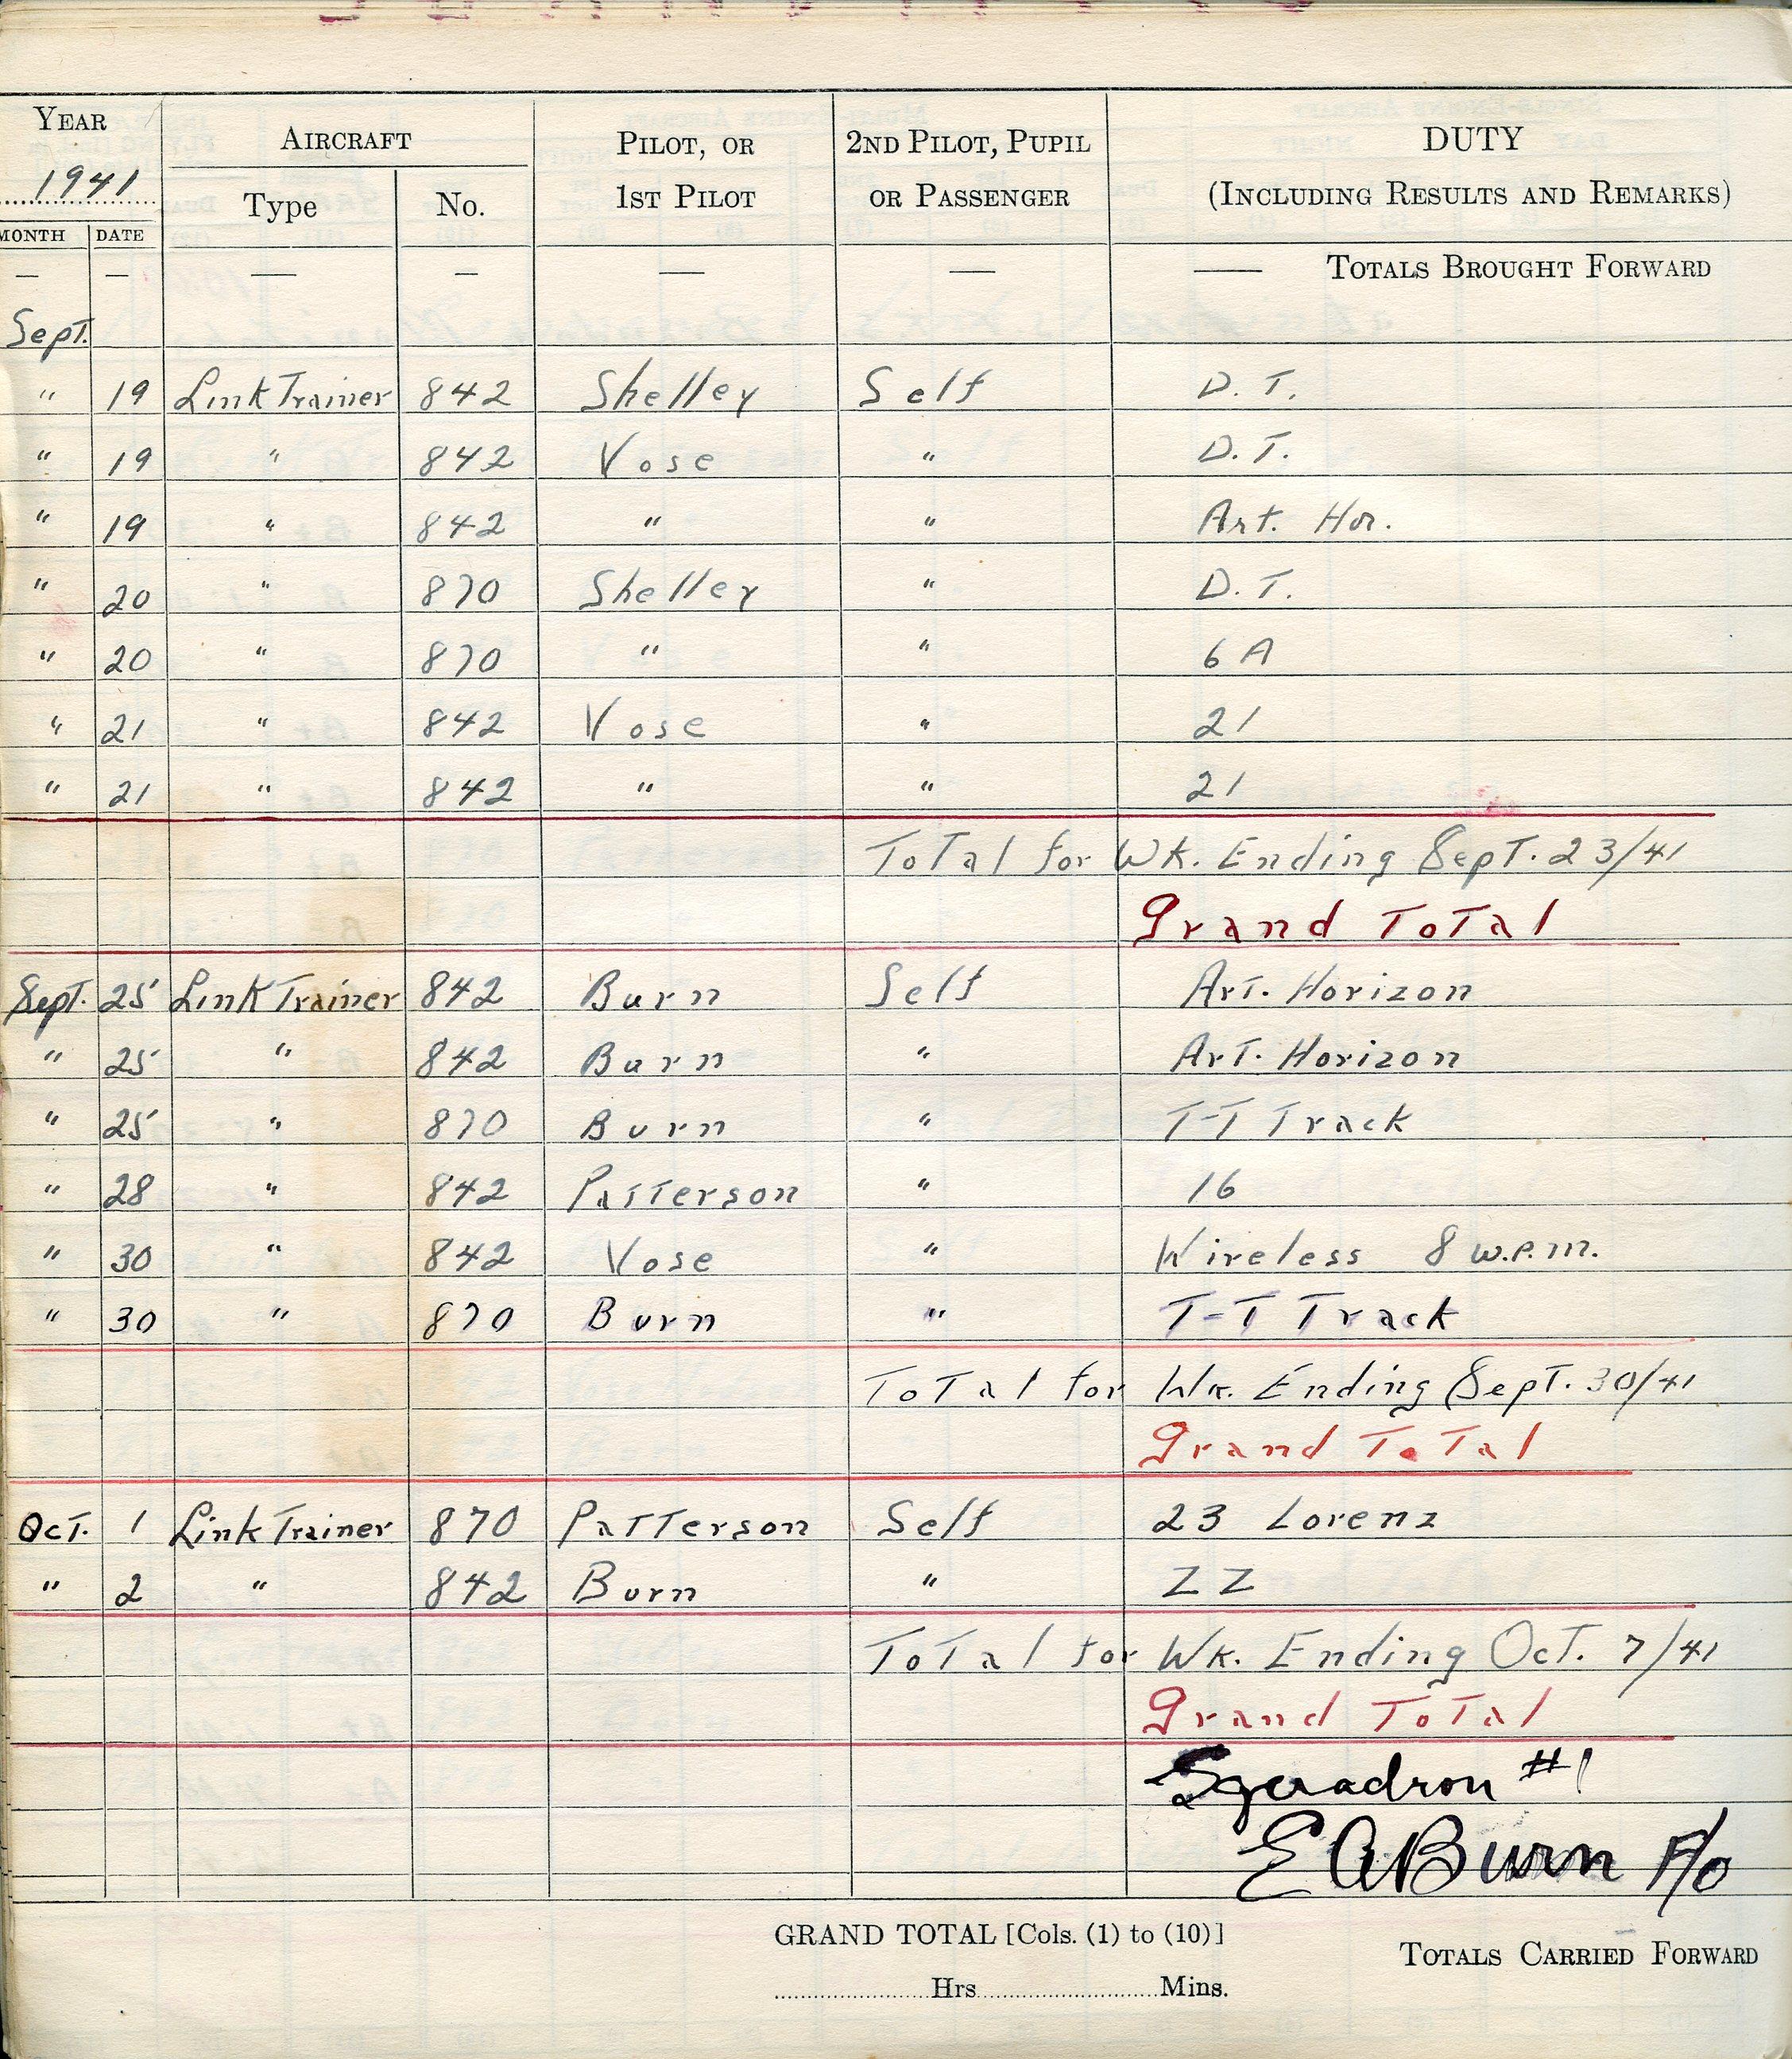 YEAR AIRCRAFT PILOT, OR 2ND PILOT, PUPIL DUTY
1941 Type No. 1ST PILOT OR PASSENGER (INCLUDING RESULTS AND REMARKS)
MONTH DATE
— — — — — — — TOTALS BROUGHT FORWARD
Sept.
" 19 Link Trainer 842 Shelley Self D. T.
" 19 " 842 Vose " D. T.
" 19 " 842 " " Art. Hor.
" 20 " 870 Shelley " D. T.
" 20 " 870 " " 6 A
" 21 " 842 Vose " 21
" 21 " 842 " " 21
Total for Wk. Ending Sept. 23/41
Grand Total
Sept. 25 Link Trainer 842 Burn Self Art. Horizon
" 25 " 842 Burn " Art. Horizon
" 25 " 870 Burn " T-T Track
" 28 " 842 Patterson " 16
" 30 " 842 Vose " Wireless 8 w.p.m.
" 30 " 870 Burn " T-T Track
Total for Wk. Ending Sept. 30/41
Grand Total
Oct. 1 Link Trainer 870 Patterson Self 23 Lorenz
" 2 " 842 Burn " ZZ
Total for Wk. Ending Oct. 7/41
Grand Total
Squadron #1
E A Burn F/O
GRAND TOTAL [Cols. (1) to (10)]
TOTALS CARRIED FORWARD
Hrs Mins.